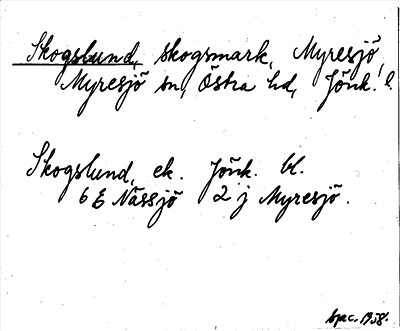 Skogslund, skogsmark, Myresjö,
Myresjö sn, Östra hd, Jönk. l.
Skogslund, ek. Jönk. bl.
6 E Nässjö 2 j Myresjö.
1958.